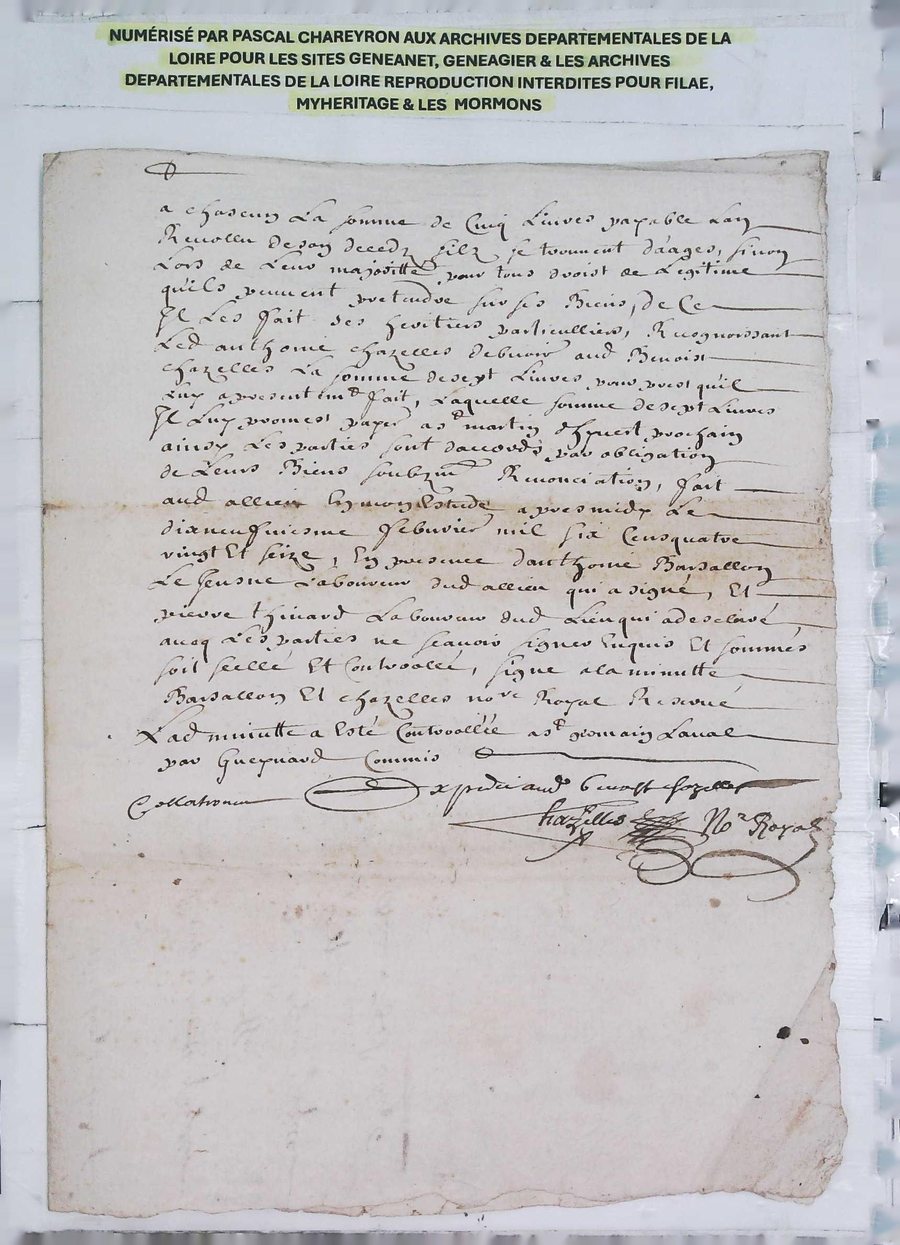 NUMÉRISÉ PAR PASCAL CHAREYRON AUX ARCHIVES DEPARTEMENTALES DE LA
LOIRE POUR LES SITES GENEANET, GENEAGIER & LES ARCHIVES
DEPARTEMENTALES DE LA LOIRE REPRODUCTION INTERDITES POUR FILAE,
MYHERITAGE & LES MORMONS
a chascung La somme de Cinq Livres payable Lan
Revollu de son decedz silz se trouvent d'aages, sinon
Lors de Leur majoritté pour tous droist de Legitime
quils peuvent pretendre sur ses Biens, de Ce
Il Les fait ses heritiers particulliers, Recognoissant
Led anthoine chazelles debvoir aud Benoist
chazelles La somme de sept Livres pour prest qu'il
Luy a presentemt fait, Laquelle somme de sept Livres
Il Luy promest payer a st martin d'hyvert prochain
ainsy Les parties sont daccordz par obligation
de Leurs Biens Renonciation, fait
aud allieu En mon Estude apres midy Le
dixneufviesme febvrier mil six Cens quatre
vingt Et seize, En presence d'anthoine Barsallon
Le Jeusne Laboureur dud allieu qui a signé, Et
pierre thinard Laboureur dud Lieu qui a desclaré
avecq Les parties ne scavoir signer Enquis Et sommés
soit scellé Et Controollé, signé a la minutte
Barsallon Et chazelles nore Royal Reservé
Lad minutte a Esté Controollée a st germain Laval
par Guepnard Commis
Collationné Expedié aud benoist chazelles
Chazelles No.re Royal